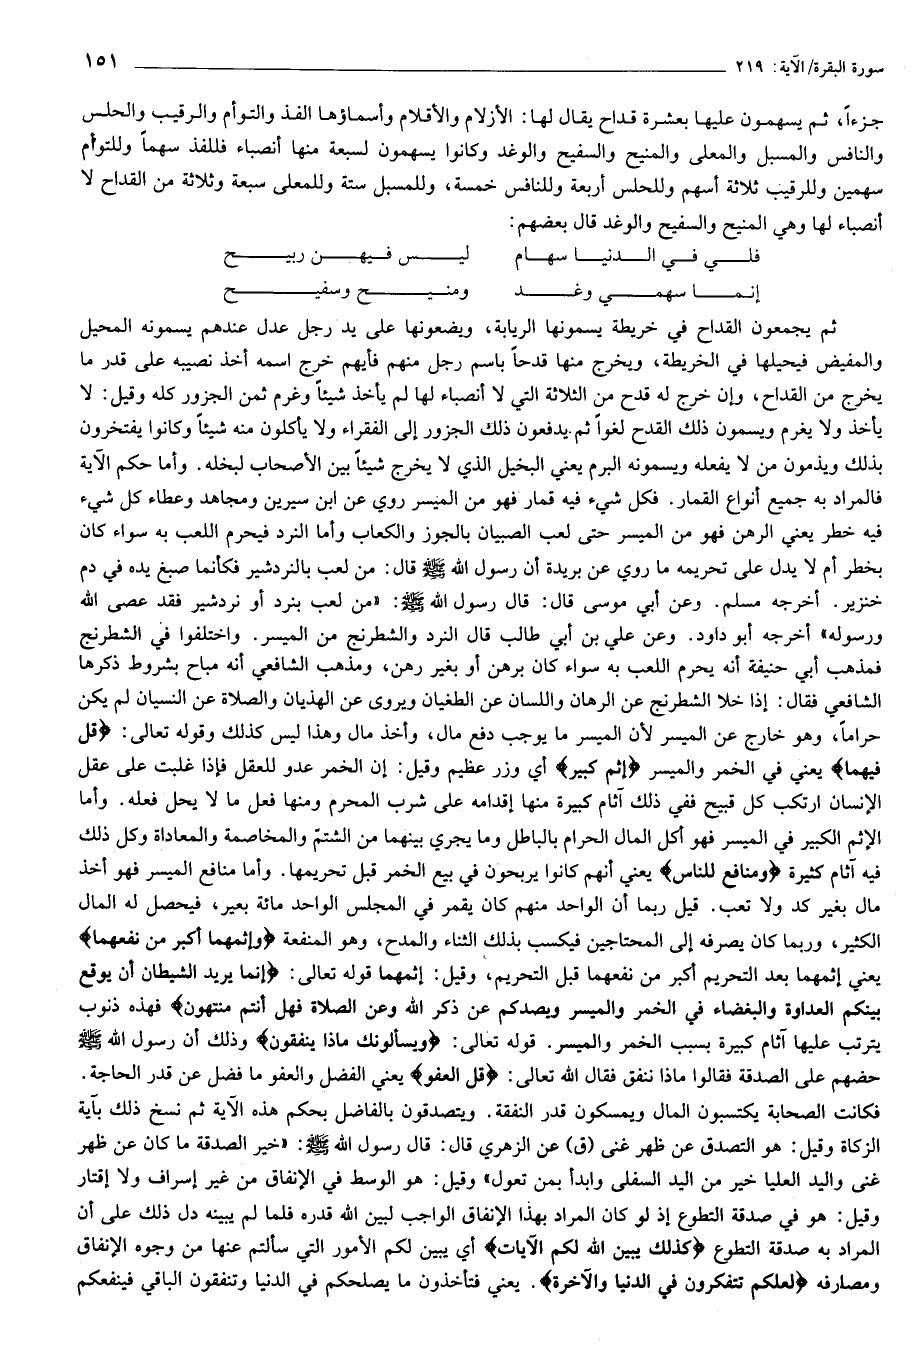 سورة البقرة/الآية: ٢١٩ ١٥١
جزءاً، ثم يسهمون عليها بعشرة قداح يقال لها: الأزلام والأقلام وأسماؤها الفذ والتوأم والرقيب والحلس
والنافس والمسبل والمعلى والمنيح والسفيح والوغد وكانوا يسهمون لسبعة منها أنصباء فللفذ سهماً وللتوأم
سهمين وللرقيب ثلاثة أسهم وللحلس أربعة وللنافس خمسة، وللمسبل ستة وللمعلى سبعة وثلاثة من القداح لا
أنصباء لها وهي المنيح والسفيح والوغد قال بعضهم:
فلي في الدنيا سهام ليس فيهن ربيح
إنما سهمي وغد ومنيح وسفيح
ثم يجمعون القداح في خريطة يسمونها الربابة، ويضعونها على يد رجل عدل عندهم يسمونه المحيل
والمفيض فيحيلها في الخريطة، ويخرج منها قدحاً باسم رجل منهم فأيهم خرج اسمه أخذ نصيبه على قدر ما
يخرج من القداح، وإن خرج له قدح من الثلاثة التي لا أنصباء لها لم يأخذ شيئاً وغرم ثمن الجزور كله وقيل: لا
يأخذ ولا يغرم ويسمون ذلك القدح لغواً ثم يدفعون ذلك الجزور إلى الفقراء ولا يأكلون منه شيئاً وكانوا يفتخرون
بذلك ويذمون من لا يفعله ويسمونه البرم يعني البخيل الذي لا يخرج شيئاً بين الأصحاب لبخله. وأما حكم الآية
فالمراد به جميع أنواع القمار. فكل شيء فيه قمار فهو من الميسر روي عن ابن سيرين ومجاهد وعطاء كل شيء
فيه خطر يعني الرهن فهو من الميسر حتى لعب الصبيان بالجوز والكعاب وأما النرد فيحرم اللعب به سواء كان
بخطر أم لا يدل على تحريمه ما روي عن بريدة أن رسول الله ﷺ قال: من لعب بالنردشير فكأنما صبغ يده في دم
خنزير. أخرجه مسلم. وعن أبي موسى قال: قال رسول الله ﷺ: «من لعب بنرد أو نردشير فقد عصى الله
ورسوله» أخرجه أبو داود. وعن علي بن أبي طالب قال النرد والشطرنج من الميسر. واختلفوا في الشطرنج
فمذهب أبي حنيفة أنه يحرم اللعب به سواء كان برهن أو بغير رهن، ومذهب الشافعي أنه مباح بشروط ذكرها
الشافعي فقال: إذا خلا الشطرنج عن الرهان واللسان عن الطغيان ويروى عن الهذيان والصلاة عن النسيان لم يكن
حراماً، وهو خارج عن الميسر لأن الميسر ما يوجب دفع مال، وأخذ مال وهذا ليس كذلك وقوله تعالى: ﴿قل
فيهما﴾ يعني في الخمر والميسر ﴿إثم كبير﴾ أي وزر عظيم وقيل: إن الخمر عدو للعقل فإذا غلبت على عقل
الإنسان ارتكب كل قبيح ففي ذلك آثام كبيرة منها إقدامه على شرب المحرم ومنها فعل ما لا يحل فعله. وأما
الإثم الكبير في الميسر فهو أكل المال الحرام بالباطل وما يجري بينهما من الشتم والمخاصمة والمعاداة وكل ذلك
فيه آثام كثيرة ﴿ومنافع للناس﴾ يعني أنهم كانوا يربحون في بيع الخمر قبل تحريمها. وأما منافع الميسر فهو أخذ
مال بغير كد ولا تعب. قيل ربما أن الواحد منهم كان يقمر في المجلس الواحد مائة بعير، فيحصل له المال
الكثير، وربما كان يصرفه إلى المحتاجين فيكسب بذلك الثناء والمدح، وهو المنفعة ﴿وإثمهما أكبر من نفعهما﴾
يعني إثمهما بعد التحريم أكبر من نفعهما قبل التحريم، وقيل: إثمهما قوله تعالى: ﴿إنما يريد الشيطان أن يوقع
بينكم العداوة والبغضاء في الخمر والميسر ويصدكم عن ذكر الله وعن الصلاة فهل أنتم منتهون﴾ فهذه ذنوب
يترتب عليها آثام كبيرة بسبب الخمر والميسر. قوله تعالى: ﴿ويسألونك ماذا ينفقون﴾ وذلك أن رسول الله ﷺ
حضهم على الصدقة فقالوا ماذا ننفق فقال الله تعالى: ﴿قل العفو﴾ يعني الفضل والعفو ما فضل عن قدر الحاجة.
فكانت الصحابة يكتسبون المال ويمسكون قدر النفقة. ويتصدقون بالفاضل بحكم هذه الآية ثم نسخ ذلك بآية
الزكاة وقيل: هو التصدق عن ظهر غنى (ق) عن الزهري قال: قال رسول الله ﷺ: «خير الصدقة ما كان عن ظهر
غنى واليد العليا خير من اليد السفلى وابدأ بمن تعول» وقيل: هو الوسط في الإنفاق من غير إسراف ولا إقتار
وقيل: هو في صدقة التطوع إذ لو كان المراد بهذا الإنفاق الواجب لبين الله قدره فلما لم يبينه دل ذلك على أن
المراد به صدقة التطوع ﴿كذلك يبين الله لكم الآيات﴾ أي يبين لكم الأمور التي سألتم عنها من وجوه الإنفاق
ومصارفه ﴿لعلكم تتفكرون في الدنيا والآخرة﴾. يعني فتأخذون ما يصلحكم في الدنيا وتنفقون الباقي فينفعكم